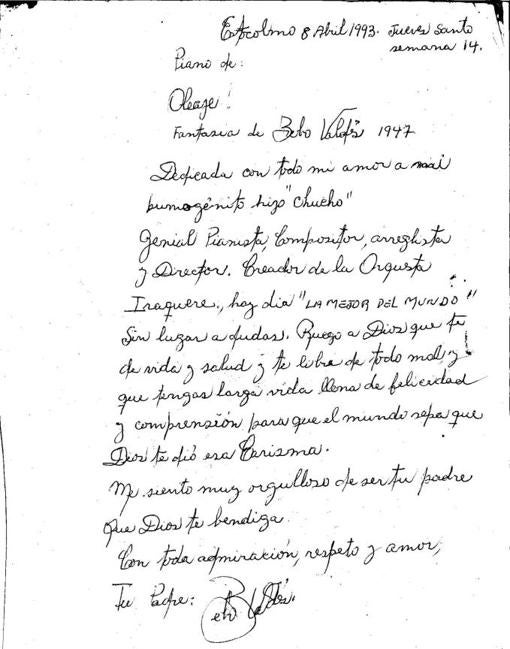 Estocolmo 8 Abril 1993. Jueves Santo
semana 14.
Piano de:
Oleaje!
Fantasia de Bebo Valdés 1947
Dedicada con todo mi amor a mi
primogénito hijo "Chucho"
Genial Pianista, Compositor, arreglista
y Director. Creador de la Orquesta
Iraquere., hoy dia "LA MEJOR DEL MUNDO"
Sin lugar a dudas. Ruego a Dios que te
de vida y salud y te libre de todo mal y
que tengas larga vida llena de felicidad
y comprensión para que el mundo sepa que
Dios te dió esa Carisma.
Me siento muy orgulloso de ser tu padre
que Dios te bendiga.
Con toda admiración, respeto y amor,
Tu Padre: Bebo Valdés.